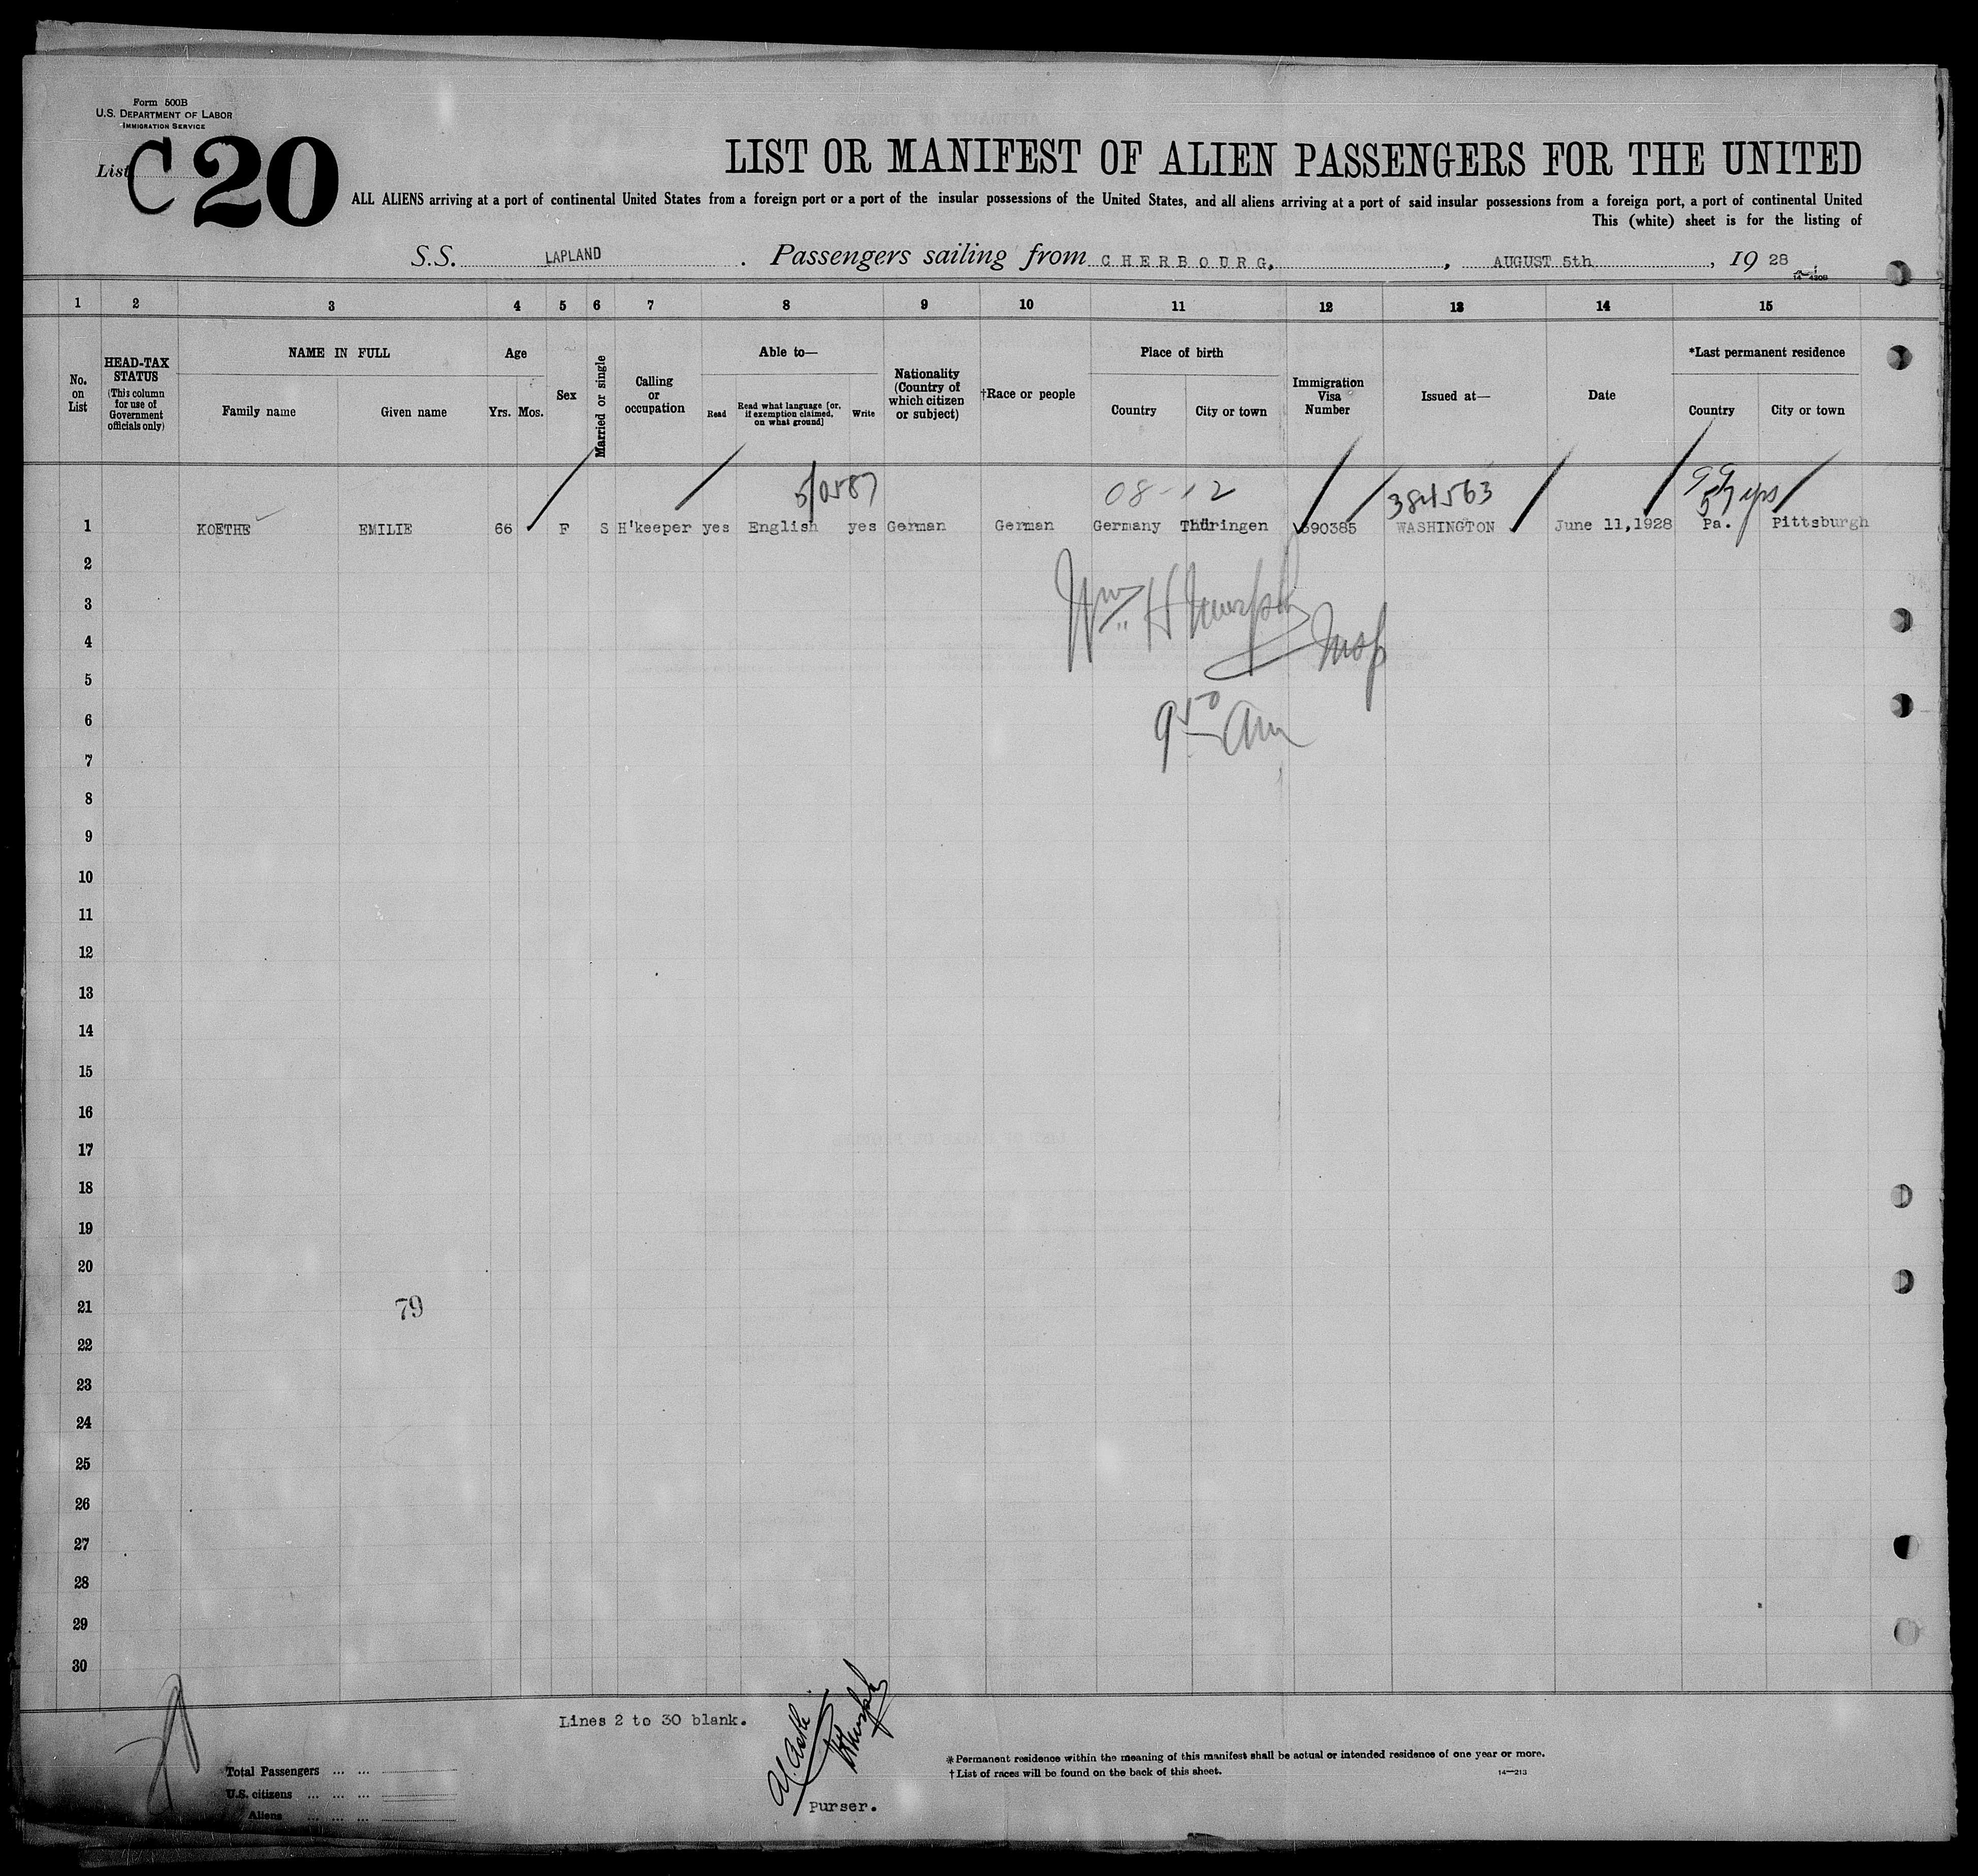 Form 500B
U.S. DEPARTMENT OF LABOR
IMMIGRATION SERVICE
List C 20
LIST OR MANIFEST OF ALIEN PASSENGERS FOR THE UNITED
ALL ALIENS arriving at a port of continental United States from a foreign port or a port of the insular possessions of the United States, and all aliens arriving at a port of said insular possessions from a foreign port, a port of continental United
This (white) sheet is for the listing of
S.S. LAPLAND . Passengers sailing from CHERBOURG, , AUGUST 5th , 19 28
1 2 3 4 5 6 7 8 9 10 11 12 13 14 15
No. on List
HEAD-TAX STATUS
(This column for use of Government officials only)
NAME IN FULL
Family name Given name
Age
Yrs. Mos.
Sex
Married or single
Calling or occupation
Able to—
Read Read what language [or, if exemption claimed, on what ground] Write
Nationality (Country of which citizen or subject)
†Race or people
Place of birth
Country City or town
Immigration Visa Number
Issued at—
Date
*Last permanent residence
Country City or town
5/0587 08-12 384563
57 yrs
1 KOETHE EMILIE 66 F S H'keeper yes English yes German German Germany Thüringen 590385 WASHINGTON June 11,1928 Pa. Pittsburgh
2
3
Wm. H Murphy Insp
4
5
6
9 50 am
7
8
9
10
11
12
13
14
15
16
17
18
19
20
21
79
22
23
24
25
26
27
28
29
30
Lines 2 to 30 blank.
*Permanent residence within the meaning of this manifest shall be actual or intended residence of one year or more.
†List of races will be found on the back of this sheet. 14—213
Total Passengers ... ...
U.S. citizens ... ... ...
Aliens ... ... ...
Purser.